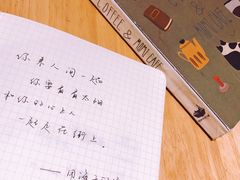 你来人间一趟
你要看看太阳
和你的心上人
一起走在街上。
COFFEE & MIMI